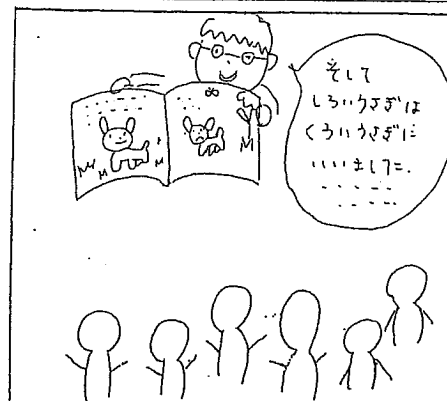 そして
しろいうさぎは
くろいうさぎに
いいました.